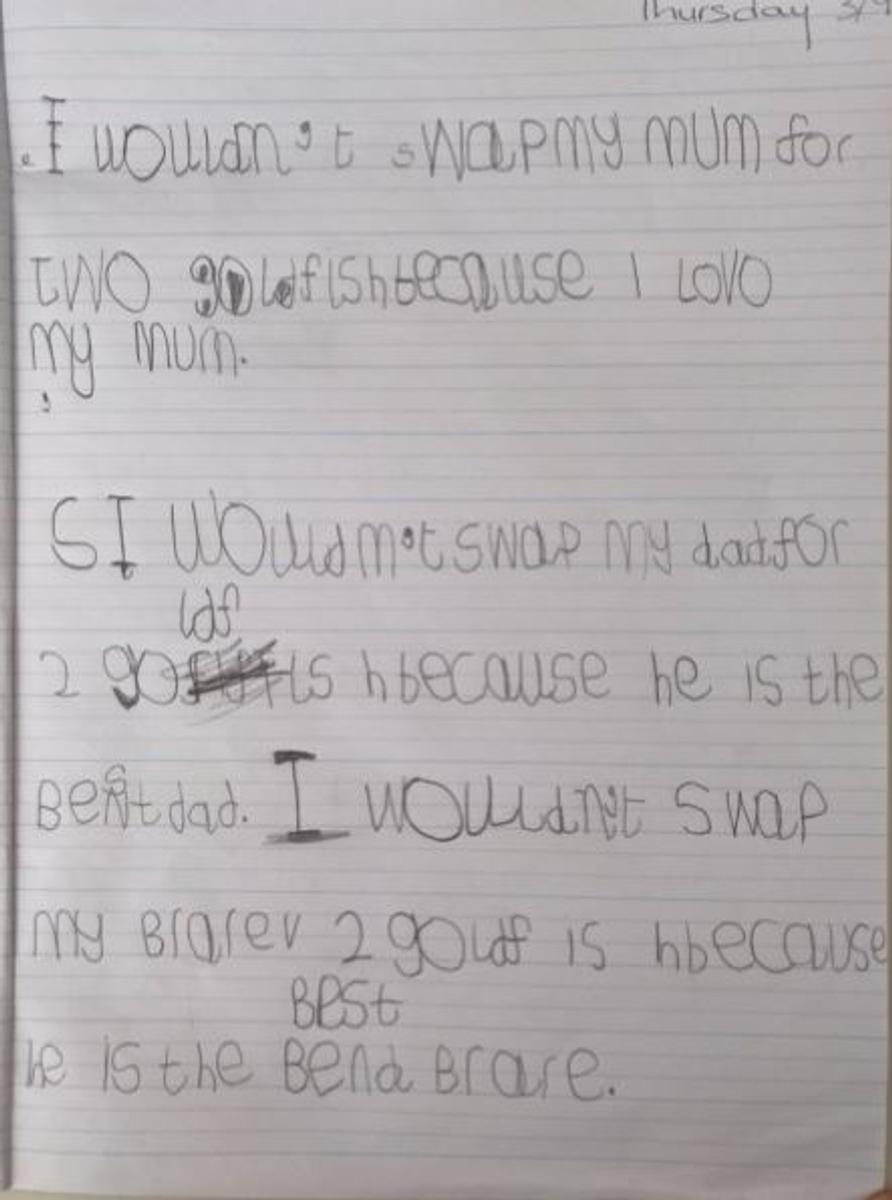 Thursday 3/9
.I wouldn't swap my mum for
two goldfish because I lovo
my mum.
SI would not swap my dad for
ldf
2 go is h because he is the
Best dad. I wouldn't swap
my Brarer 2 goldf is h because
BEST
he is the Bend Brare.